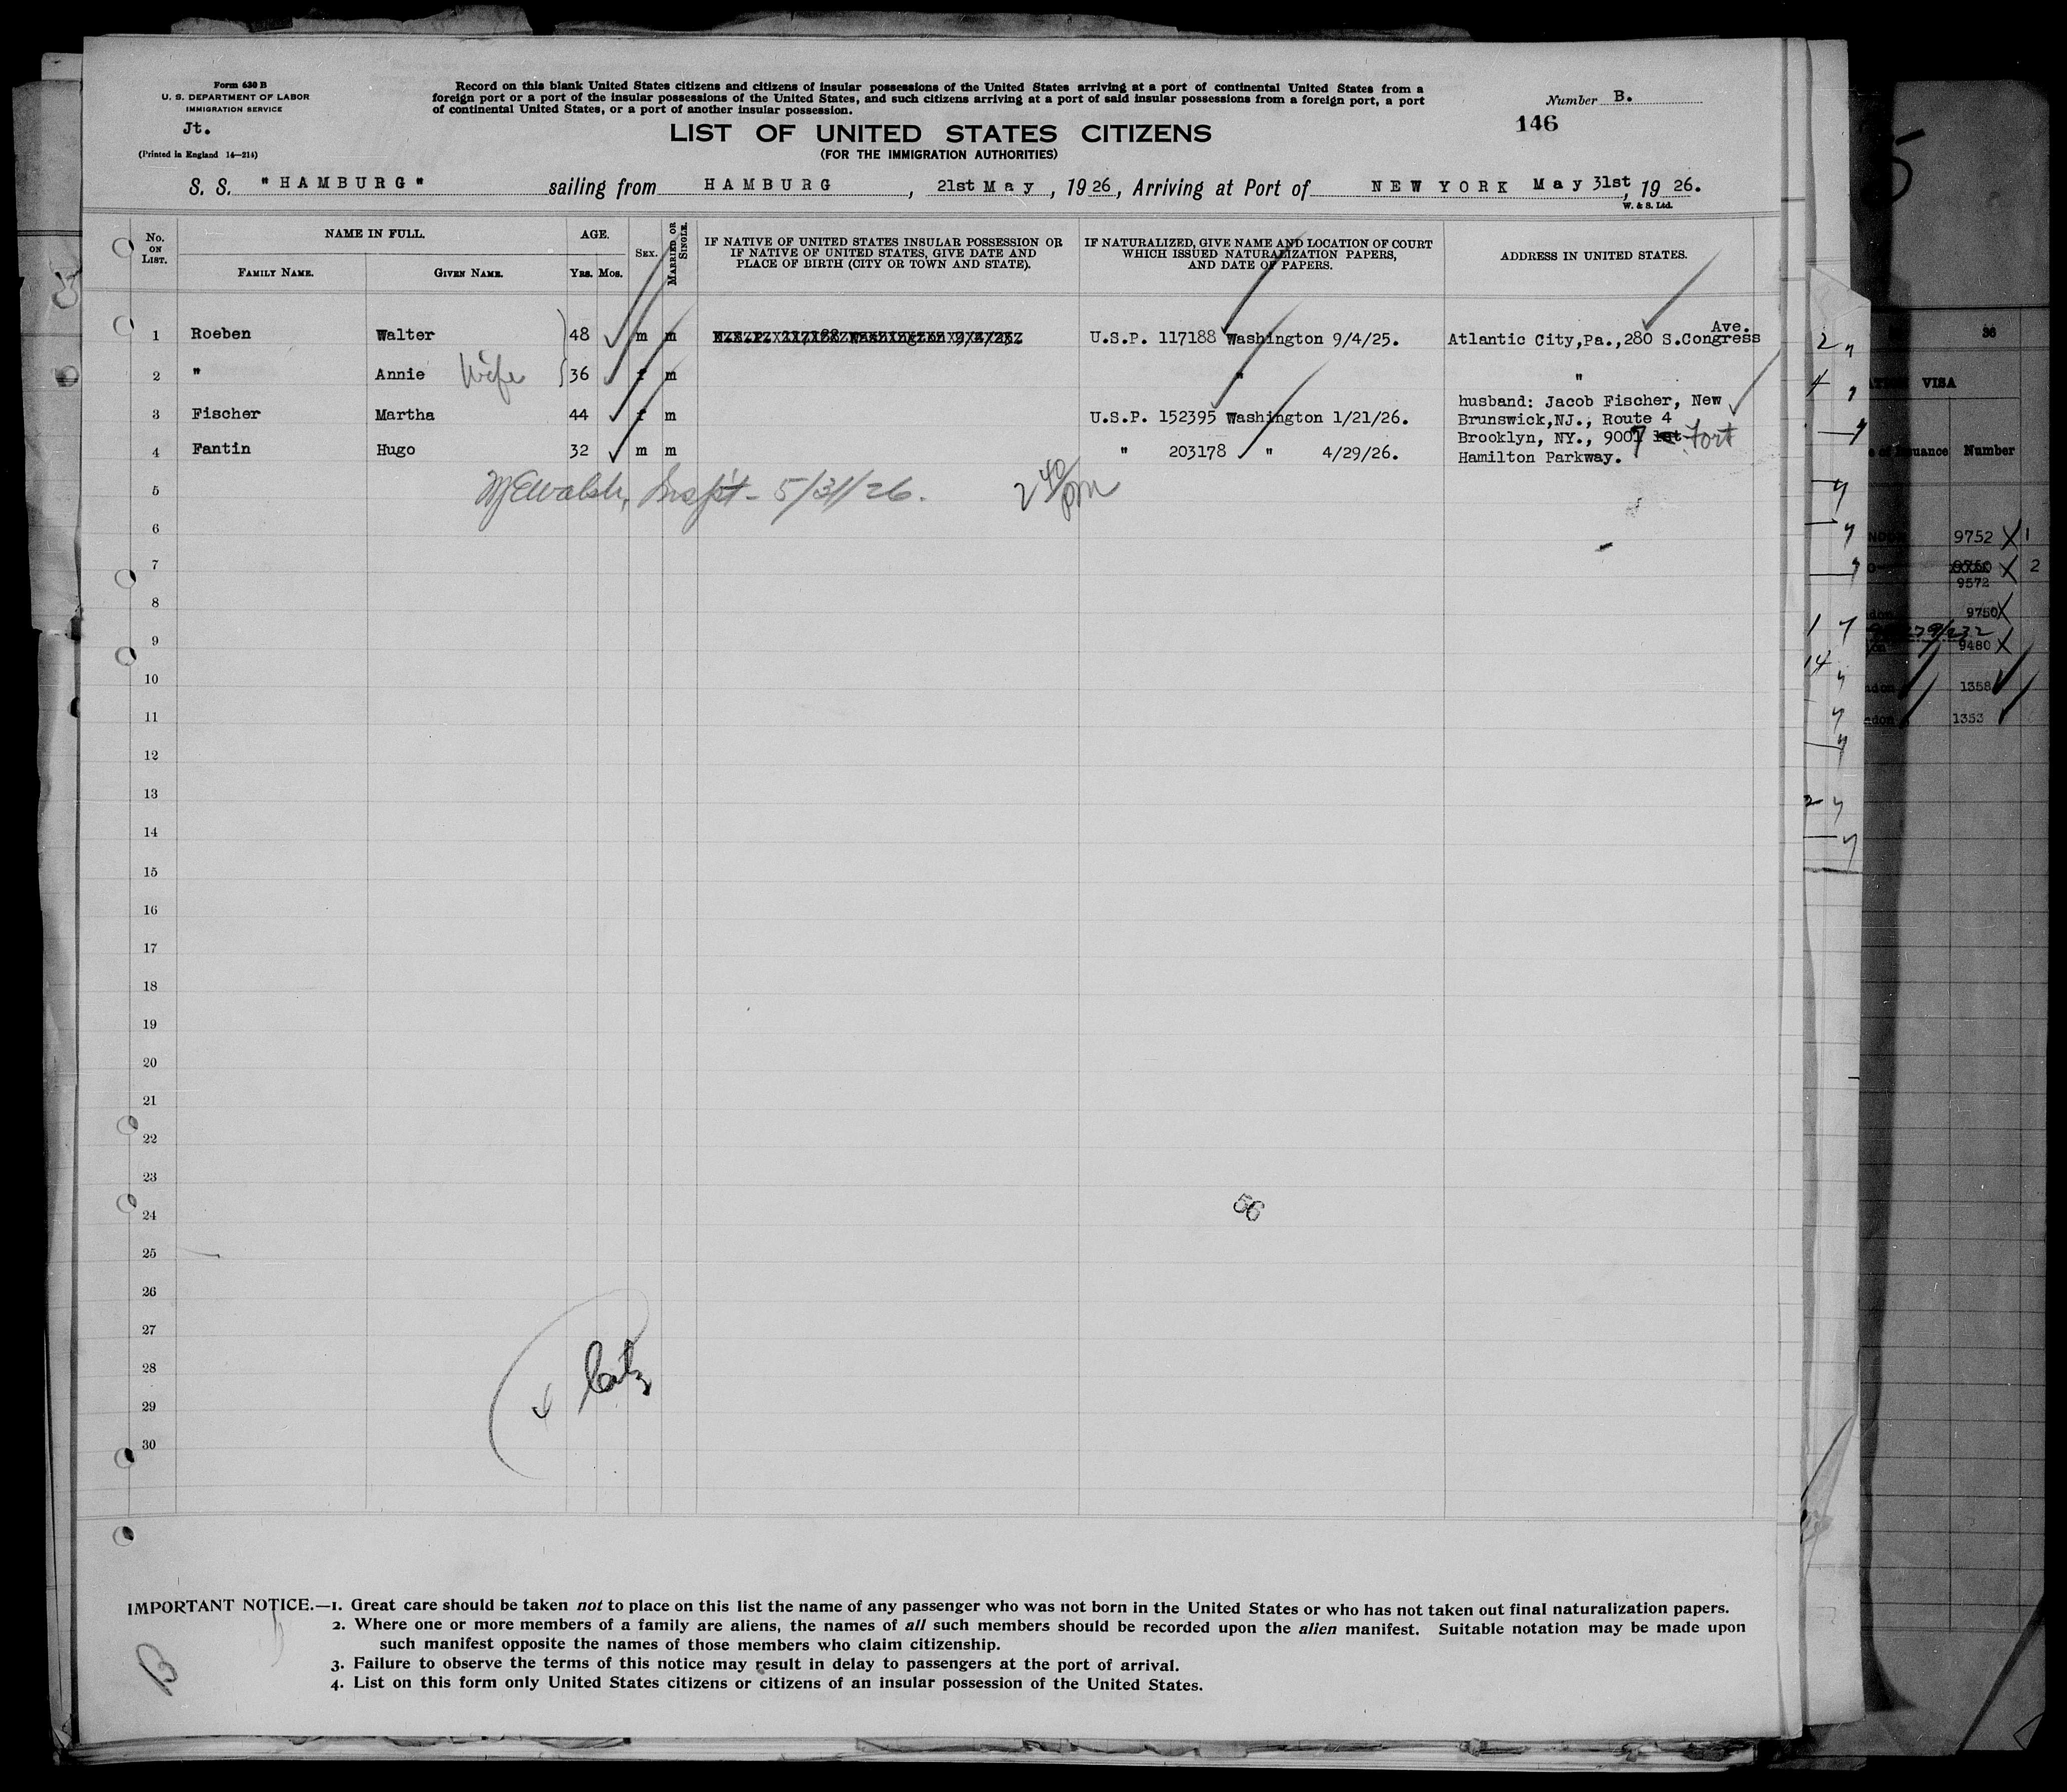 Form 630 B
U. S. DEPARTMENT OF LABOR
IMMIGRATION SERVICE
Jt.
(Printed in England 14—214)
Record on this blank United States citizens and citizens of insular possessions of the United States arriving at a port of continental United States from a
foreign port or a port of the insular possessions of the United States, and such citizens arriving at a port of said insular possessions from a foreign port, a port
of continental United States, or a port of another insular possession.
Number B.
146
LIST OF UNITED STATES CITIZENS
(FOR THE IMMIGRATION AUTHORITIES)
S. S. "HAMBURG" sailing from HAMBURG, 21st May, 1926, Arriving at Port of NEW YORK May 31st, 1926.
W. & S. Ltd.
No. ON LIST.
NAME IN FULL.
FAMILY NAME.
GIVEN NAME.
AGE.
YRS. MOS.
SEX.
MARRIED OR SINGLE.
IF NATIVE OF UNITED STATES INSULAR POSSESSION OR
IF NATIVE OF UNITED STATES, GIVE DATE AND
PLACE OF BIRTH (CITY OR TOWN AND STATE).
IF NATURALIZED, GIVE NAME AND LOCATION OF COURT
WHICH ISSUED NATURALIZATION PAPERS,
AND DATE OF PAPERS.
ADDRESS IN UNITED STATES.
1 Roeben Walter 48 m m U.S.P. 117188 Washington 9/4/25. Atlantic City,Pa.,280 S.Congress Ave.
2 " Annie Wife 36 f m " "
3 Fischer Martha 44 f m U.S.P. 152395 Washington 1/21/26. husband: Jacob Fischer, New
Brunswick,NJ., Route 4
4 Fantin Hugo 32 m m " 203178 " 4/29/26. Brooklyn, NY., 9007 Fort
Hamilton Parkway.
5
Walsh, Inspt - 5/31/26. 2 40/pm
6
7
8
9
10
11
12
13
14
15
16
17
18
19
20
21
22
23
24
56
25
26
27
28
29
30
IMPORTANT NOTICE.—1. Great care should be taken not to place on this list the name of any passenger who was not born in the United States or who has not taken out final naturalization papers.
2. Where one or more members of a family are aliens, the names of all such members should be recorded upon the alien manifest. Suitable notation may be made upon
such manifest opposite the names of those members who claim citizenship.
3. Failure to observe the terms of this notice may result in delay to passengers at the port of arrival.
4. List on this form only United States citizens or citizens of an insular possession of the United States.
B
36
VISA
Number
9752 X 1
X 2
9572
9750 X
9480 X
1358
1353